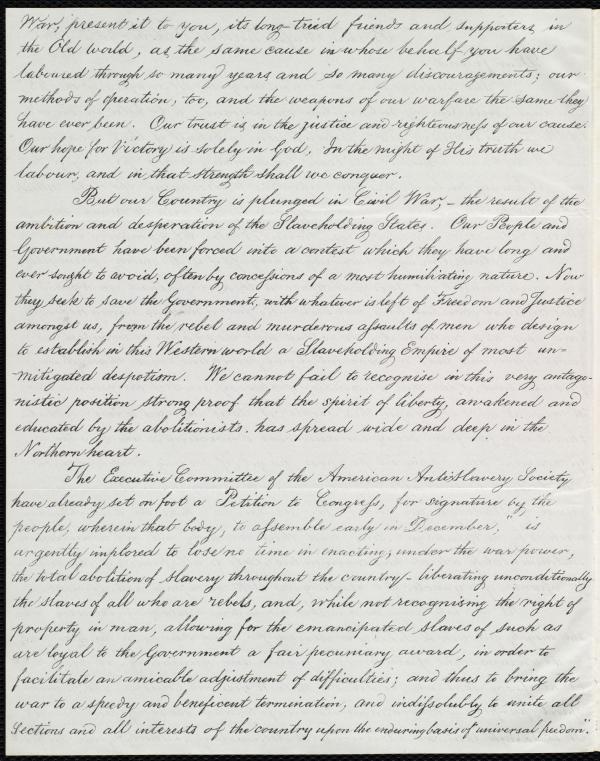 War, present it to you, its long-tried friends and supporters in
the Old World, as the same cause in whose behalf you have
laboured through so many years and so many discouragements; our
methods of operation, too, and the weapons of our warfare the same they
have ever been. Our trust is in the justice and righteousness of our cause.
Our hope for Victory is solely in God, In the might of His truth we
labour, and in that strength shall we conquer.
But our Country is plunged in Civil War, – the result of the
ambition and desperation of the Slaveholding States. Our People and
Government have been forced into a contest which they have long and
ever sought to avoid, often by concessions of a most humiliating nature. Now
they seek to save the Government, with whatever is left of Freedom and Justice
amongst us, from the rebel and murderous assaults of men who design
to establish in this Western world a Slaveholding Empire of most un-
mitigated despotism. We cannot fail to recognise in this very antago-
nistic position strong proof that the spirit of liberty, awakened and
educated by the abolitionists has spread wide and deep in the
Northern heart.
The Executive Committee of the American AntiSlavery Society
have already set on foot a Petition to Congress, for signature by the
people, wherein that body, to assemble early in December, " is
urgently implored to lose no time in enacting, under the war power,
the total abolition of slavery throughout the country – liberating unconditionally
the slaves of all who are rebels, and, while not recognising the right of
property in man, allowing for the emancipated slaves of such as
are loyal to the Government a fair pecuniary award, in order to
facilitate an amicable adjustment of difficulties; and thus to bring the
war to a speedy and beneficent termination, and indissolubly to unite all
sections and all interests of the country upon the enduring basis of universal freedom."